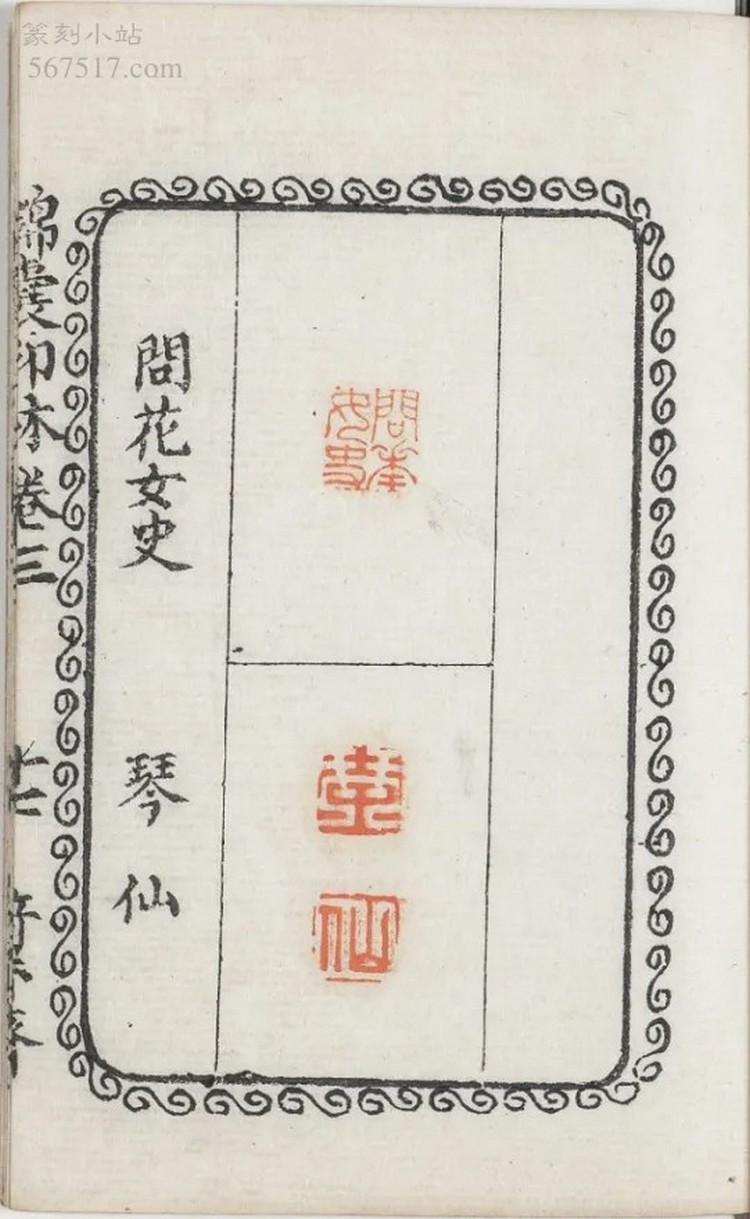 篆刻小站
567517.com
問花女史
琴仙
問花女史
琴仙
錦囊印林卷三